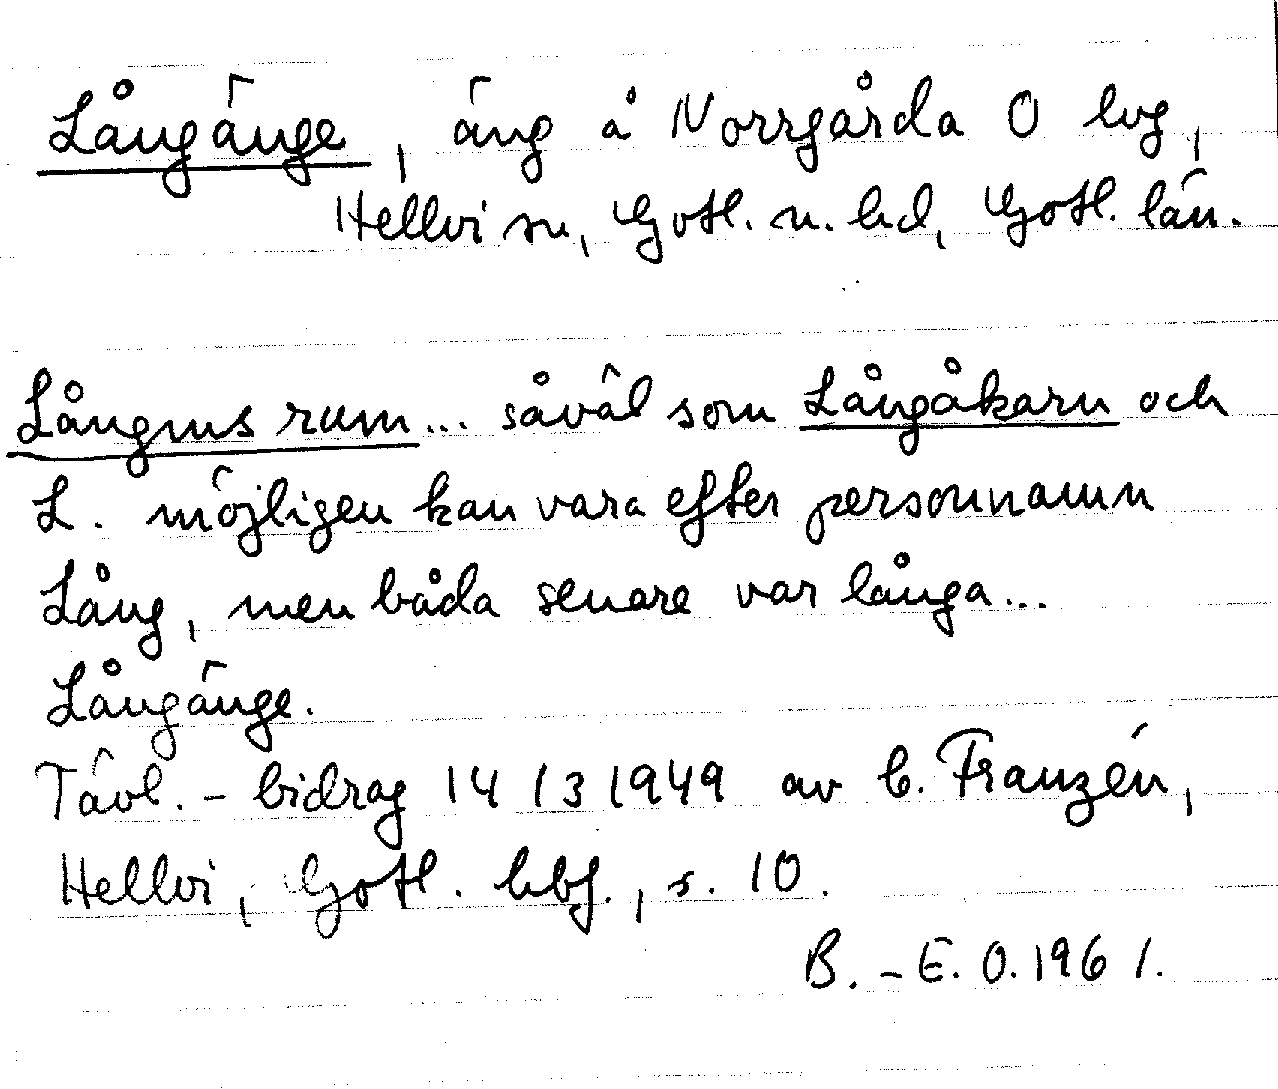 Långänge, äng å Norrgårda O hvg,
Hellvi sn, Gotl. n. hd, Gotl. län.
Långms rum... såväl som Långåkarn och
L. möjligen kan vara efter personnamn
Lång, men båda senare var långa...
Långänge.
Tävl.-bidrag 14/3 1949 av C. Franzén,
Hellvi, Gotl. hbf., s. 10.
B.-E. O. 1961.